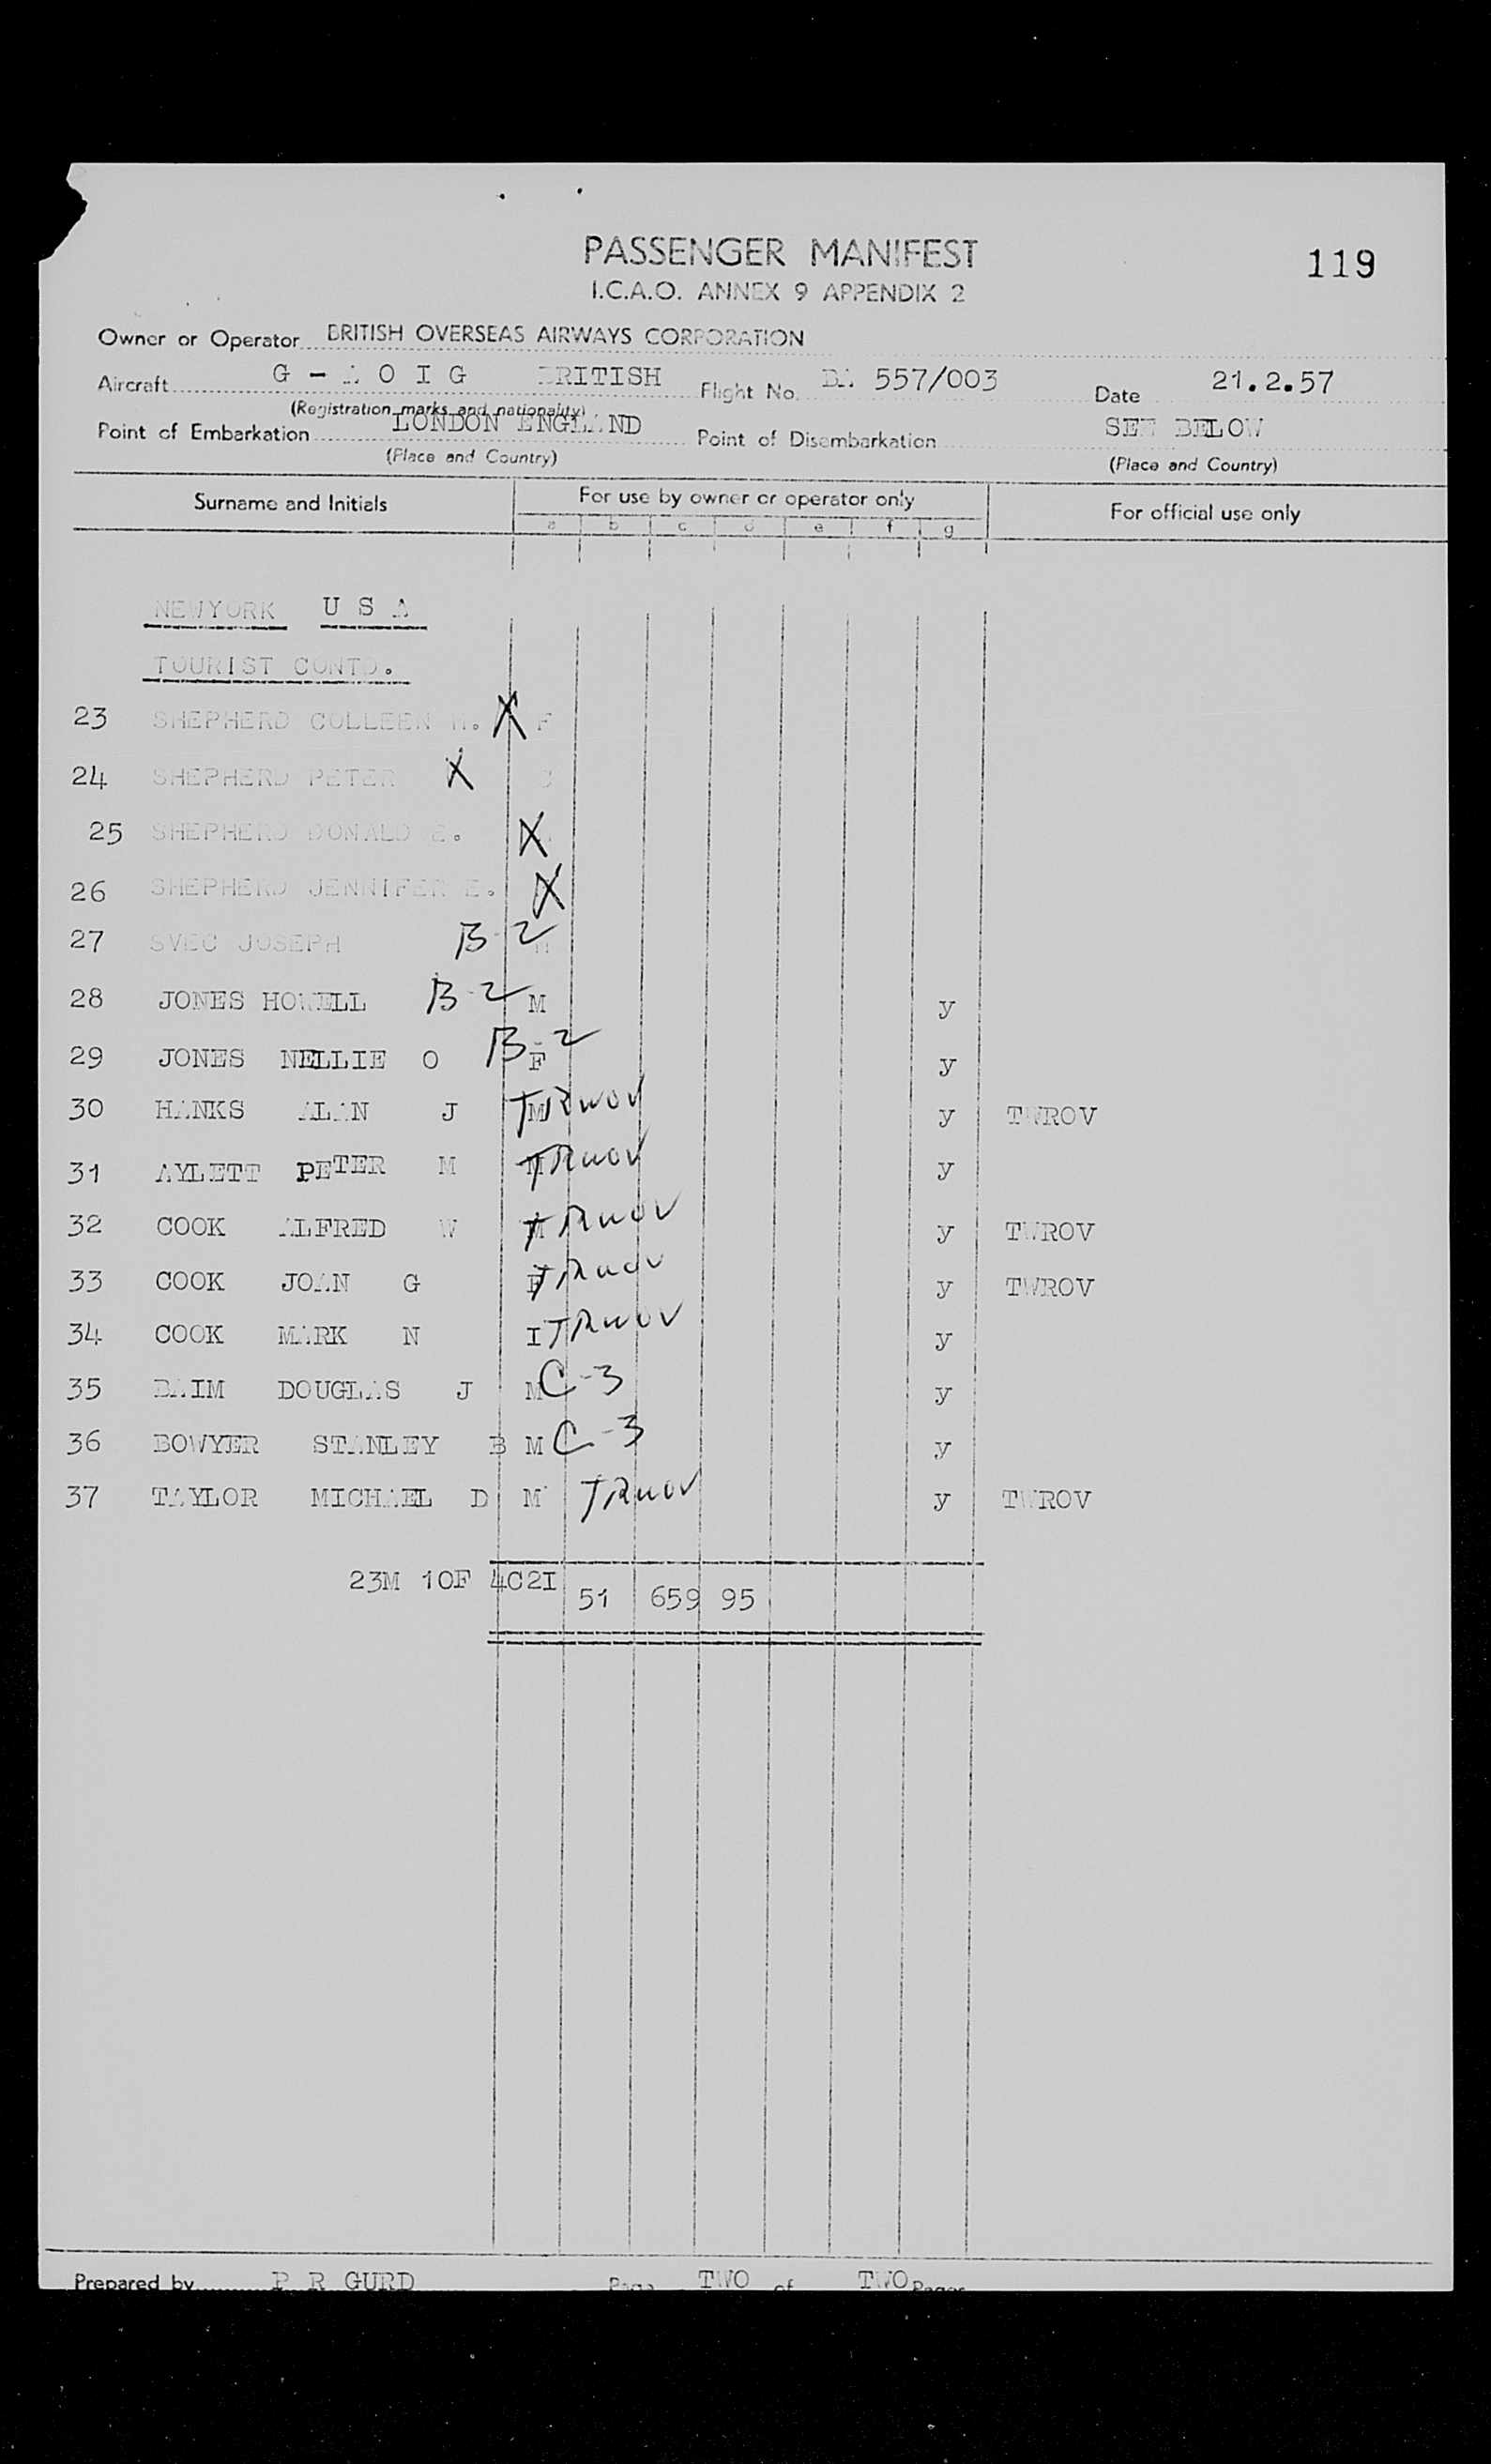 PASSENGER MANIFEST
119
I.C.A.O. ANNEX 9 APPENDIX 2
Owner or Operator BRITISH OVERSEAS AIRWAYS CORPORATION
Aircraft G - A O I G BRITISH Flight No. BA 557/003 Date 21.2.57
(Registration marks and nationality)
Point of Embarkation LONDON ENGLAND Point of Disembarkation SEE BELOW
(Place and Country) (Place and Country)
Surname and Initials For use by owner or operator only For official use only
a b c d e f g
NEWYORK U S A
TOURIST CONTD.
23 SHEPHERD COLLEEN X F
24 SHEPHERD PETER X
25 SHEPHERD DONALD E. X
26 SHEPHERD JENNIFER E. X
27 SVEC JOSEPH B-2 M
28 JONES HOWELL B-2 M y
29 JONES NELLIE O B-2 F y
30 HANKS ALAN J M TRWOV y TWROV
31 AYLETT PETER M M TRWOV y
32 COOK ALFRED W M TRWOV y TWROV
33 COOK JOAN G F TRWOV y TWROV
34 COOK MARK N I TRWOV y
35 BAIM DOUGLAS J M C-3 y
36 BOWYER STANLEY B M C-3 y
37 TAYLOR MICHAEL D M TRWOV y TWROV
23M 10F 4C2I 51 659 95
Prepared by P R GURD Page TWO of TWO Pages